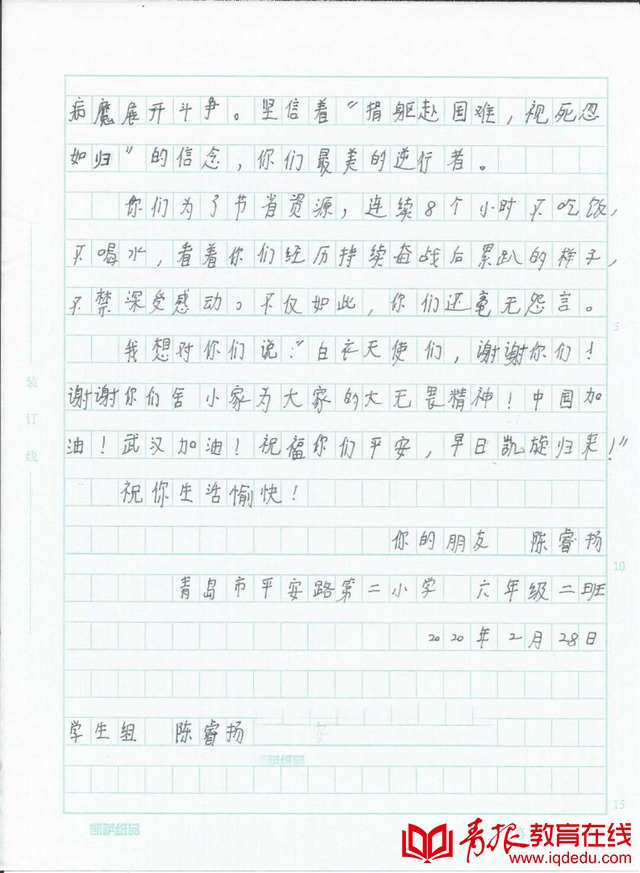 病魔展开斗争。坚信着“捐躯赴国难，视死忍
如归”的信念，你们最美的逆行者。
你们为了节省资源，连续8个小时不吃饭，
不喝水，看着你们经历持续奋战后累趴的样子，
不禁深受感动。不仅如此，你们还毫无怨言。
我想对你们说：“白衣天使们，谢谢你们！
谢谢你们舍小家为大家的大无畏精神！中国加
油！武汉加油！祝福你们平安，早日凯旋归来！”
祝你生活愉快！
你的朋友 陈睿扬
青岛市平安路第二小学 六年级二班
2020年2月28日
学生组 陈睿扬
装订线
5
10
15
青报教育在线
www.iqdedu.com